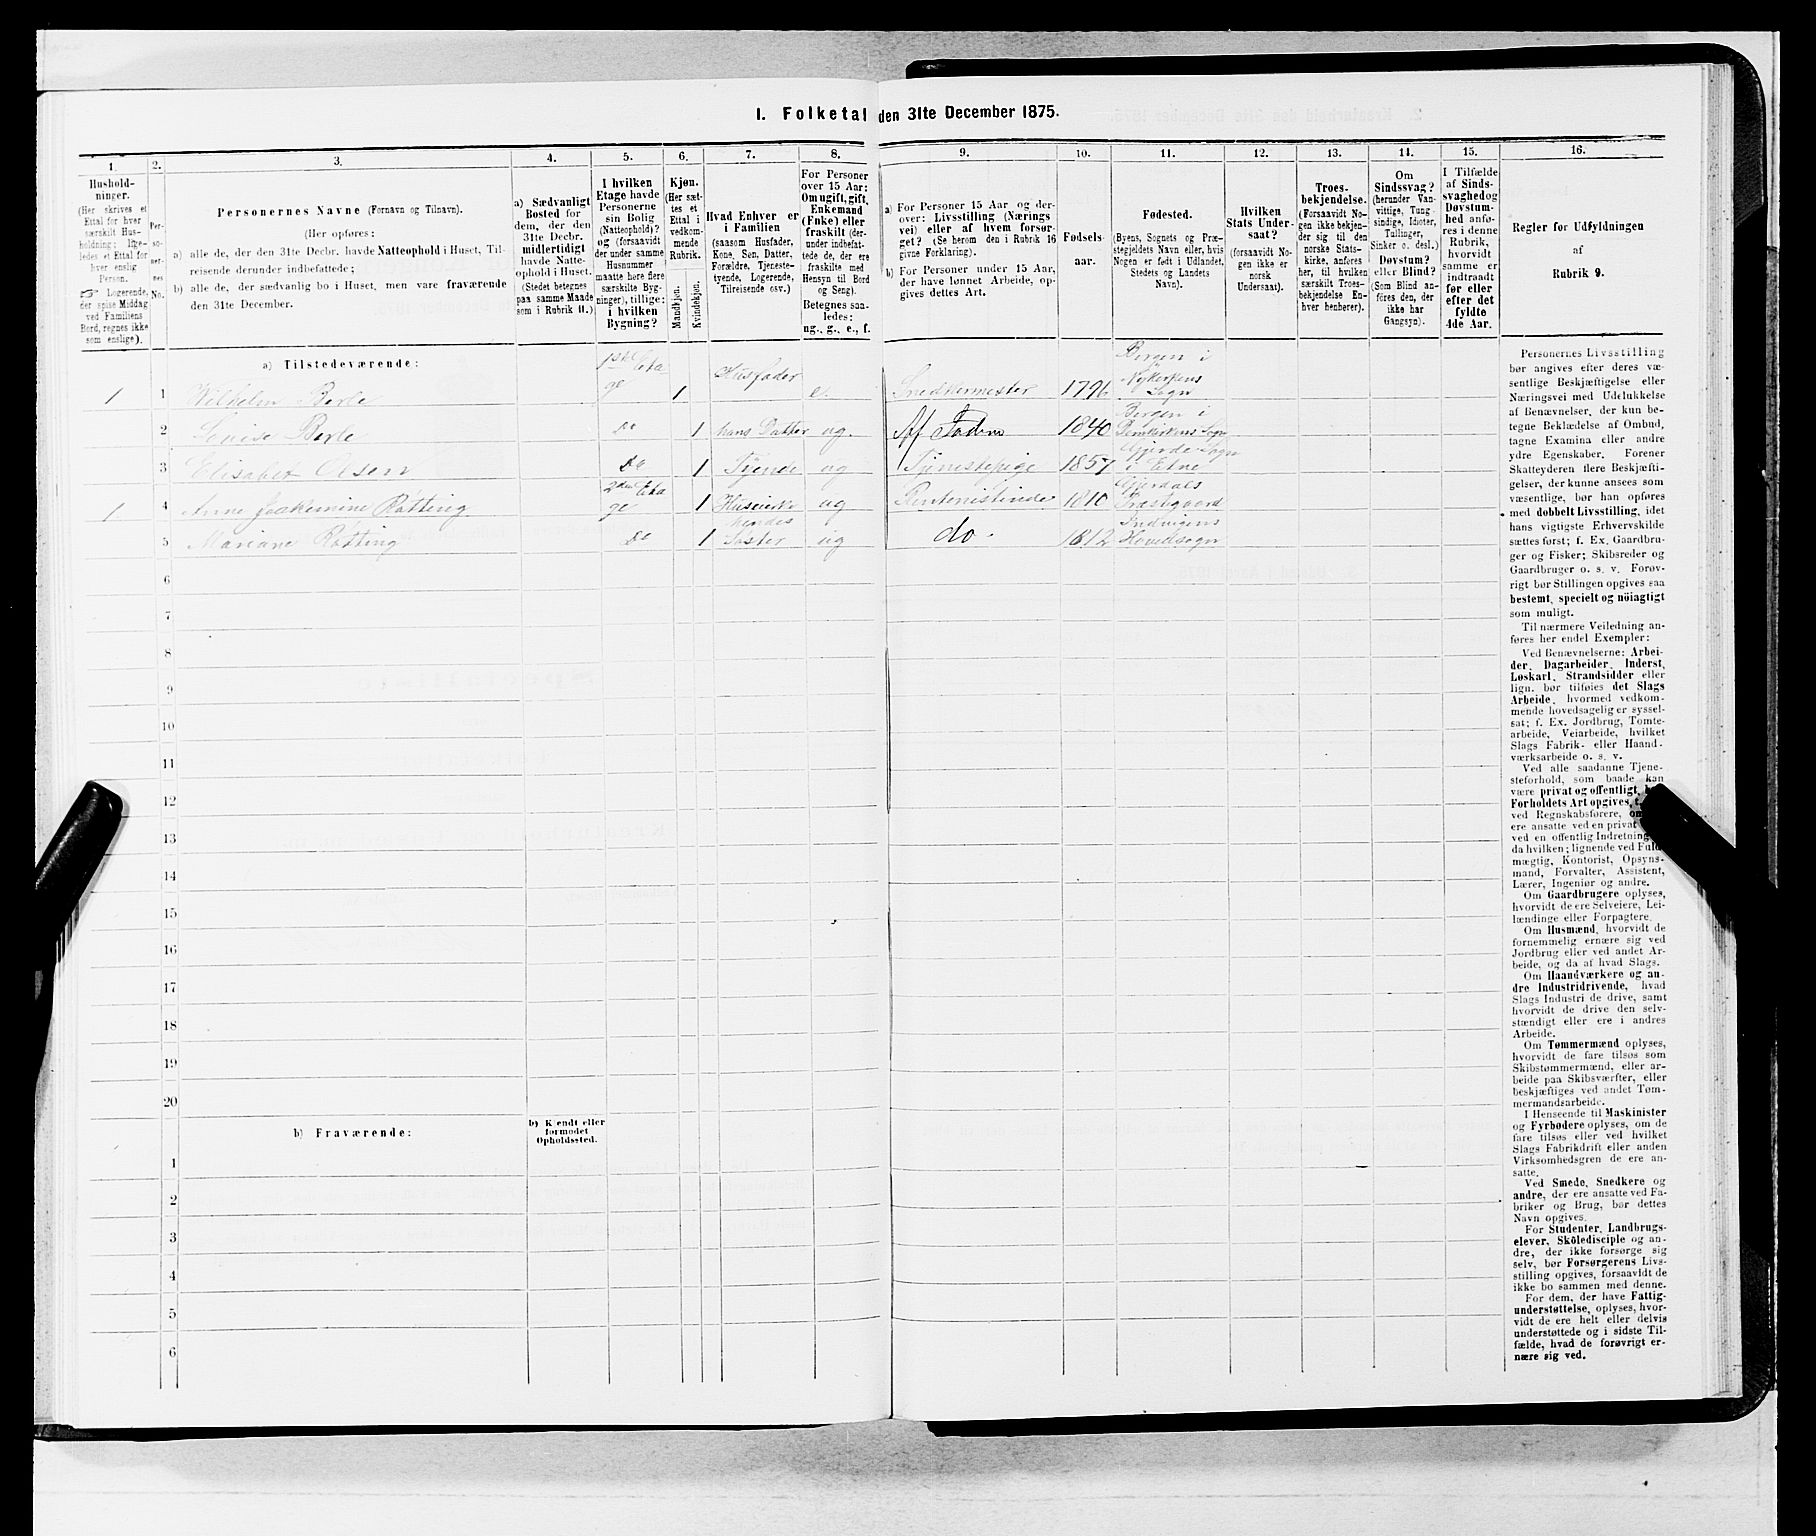 1. Folketal den 31te December 1875.
1. 2. 3. 4. 5. 6. 7. 8. 9. 10. 11. 12. 13. 14. 15. 16.
Hushold-
ninger.
(Her skrives et
Ettal for hver
særskilt Hus-
holdning; lige-
ledes et Ettal for
hver enslig
Person.
☞ Logerende,
der spise Middag
ved Familiens
Bord, regnes ikke
som enslige).
Per-
so-
ner-
nes
No.
Personernes Navne (Fornavn og Tilnavn).
(Her opføres:
a) alle de, der den 31te Decbr. havde Natteophold i Huset, Til-
reisende derunder indbefattede;
b) alle de, der sædvanlig bo i Huset, men vare fraværende
den 31te December.
a) Sædvanligt
Bosted for
dem, der den
31te Decbr.
midlertidigt
havde Natte-
ophold i Huset.
(Stedet betegnes
paa samme Maade
som i Rubrik 11.)
I hvilken
Etage havde
Personerne
sin Bolig
(Natteophold)?
og (forsaavidt
der under samme
Husnummer
maatte høre flere
særskilte Byg-
ninger), tillige:
i hvilken
Bygning?
Kjøn.
(Her sæt-
tes et
Ettal i
vedkom-
mende
Rubrik.
Mandkjøn.
Kvindekjøn.
Hvad Enhver er
i Familien
(saasom Husfader,
Kone, Søn, Datter,
Forældre, Tjeneste-
tyende, Logerende,
Tilreisende osv.)
For Personer
over 15 Aar:
Om ugift, gift,
Enkemand
(Enke) eller
fraskilt (der-
under indbefat-
tede de, der ere
fraskilte med
Hensyn til Bord
og Seng).
Betegnes saa-
ledes:
ug., g., e., f.
a) For Personer 15 Aar og der-
over: Livsstilling (Nærings
vei) eller af hvem forsør-
get? (Se herom den i Rubrik 16
givne Forklaring).
b) For Personer under 15 Aar,
der have lønnet Arbeide, op-
gives dettes Art.
Fødsels-
aar.
Fødested.
(Byens, Sognets og Præ-
stegjeldets Navn eller, hvis
Nogen er født i Udlandet,
Stedets og Landets
Navn).
Hvilken
Stats Under-
saat?
(forsaavidt No-
gen ikke er
norsk
Undersaat).
Troes-
bekjendelse.
(Forsaavidt No-
gen ikke bekjen-
der sig til den
norske Stats-
kirke, anføres
her, til hvilken
særskilt Troes-
bekjendelse En-
hver henhører).
Om
Sindssvag?
(herunder Van-
vittige, Tung-
sindige, Idioter,
Tullinger,
Sinker o. desl.)
Døvstum?
eller Blind?
(Som Blind an-
føres den, der
ikke har
Gangsyn).
I Tilfælde
af Sinds-
svaghed og
Døvstum-
hed anfø-
res i denne
Rubrik,
hvorvidt
samme er
indtraadt
før eller
efter det
fyldte
4de Aar.
Regler for Udfyldningen
af
Rubrik 9.
a) Tilstedeværende:
1 1 Wilhelm Berle 1ste Etage 1 Husfader e. Snedkermester 1796 Bergen i Nykirkens Sogn
2 Louise Berle Do 1 hans Datter ug. Af Faderen 1840 Bergen i Domkirkens Sogn
3 Elisabet Olsen Do 1 Tyende ug Tjenestepige 1857 Gjerde Sogn i Etne
1 4 Anne Joakimine Røtting 2den Etage 1 ug Rentenistinde 1810 Præstgaard
5 Mariane Røtting Do 1 hendes Søster ug do. 1812 Indvigens Hovedsogn
6
7
8
9
10
11
12
13
14
15
16
17
18
19
20
b) Fraværende:
b) Kjendt eller
formodet
Opholdssted.
1
2
3
4
5
6
Personernes Livsstilling
bør angives efter deres væ-
sentlige Beskjæftigelse eller
Næringsvei med Udelukkelse
af Benævnelser, der kun be-
tegne Beklædelse af Ombud,
tagne Examina eller andre
ydre Egenskaber. Forener
Skatteyderen flere Beskjæfti-
gelser, der kunne ansees som
væsentlige, bør han opføres
med dobbelt Livsstilling, idet
hans vigtigste Erhvervskilde
sættes først; f. Ex. Gaardbru-
ger og Fisker; Skibsreder og
Gaardbruger o. s. v. Forøv-
rigt bør Stillingen opgives saa
bestemt, specielt og nöiagtigt
som muligt.
Til nærmere Veiledning an-
føres her endel Exempler:
Ved Benævnelserne: Arbei-
der, Dagarbeider, Inderst,
Løskarl, Strandsidder eller
lign. bør tilføies det Slags
Arbeide, hvormed vedkom-
mende hovedsagelig er syssel-
sat; f. Ex. Jordbrug, Tomte-
arbeide, Veiarbeide, hvilket
Slags Fabrik- eller Haand-
værksarbeide o. s. v.
Ved alle saadanne Tjene-
steforhold, som baade kan
være privat og offentligt,
Forholdets Art opgives,
ved Regnskabsførere,
ere ansatte ved en privat
ved en offentlig Indretning
da hvilken; lignende ved Fuld-
mægtig, Kontorist, Opsyns-
mand, Forvalter, Assistent,
Lærer, Ingeniør og andre.
Om Gaardbrugere oplyses,
hvorvidt de ere Selveiere, Lei-
lændinge eller Forpagtere.
Om Husmænd, hvorvidt de
fornemmelig ernære sig ved
Jordbrug eller ved andet Ar-
beide, og da af hvad Slags.
Om Haandværkere og an-
dre Industridrivende, hvad
Slags Industri de drive, samt
hvorvidt de drive den selv-
stændigt eller ere i andres
Arbeide.
Om Tømmermænd oplyses,
hvorvidt de fare tilsøs som
Skibstømmermænd, eller ar-
beide paa Skibsværfter, eller
beskjæftiges ved andet Tøm-
mermandsarbeide.
I Henseende til Maskinister
og Fyrbødere oplyses, om de
fare tilsøs eller ved hvilket
Slags Fabrikdrift eller anden
Virksomhedsgren de ere an-
satte.
Ved Smede, Snedkere og
andre, der ere ansatte ved Fa-
briker og Brug, bør dettes
Navn opgives.
For Studenter, Landbrugs-
elever, Skôledisciple og an-
dre, der ikke forsørge sig
selv, bør Forsørgerens Livs-
stilling opgives, forsaavidt de
ikke bo sammen med denne.
For dem, der have Fattig-
understøttelse, oplyses, hvor-
vidt de ere helt eller delvis
understøttede og i sidste Til-
fælde, hvad de forøvrigt er-
nære sig ved.